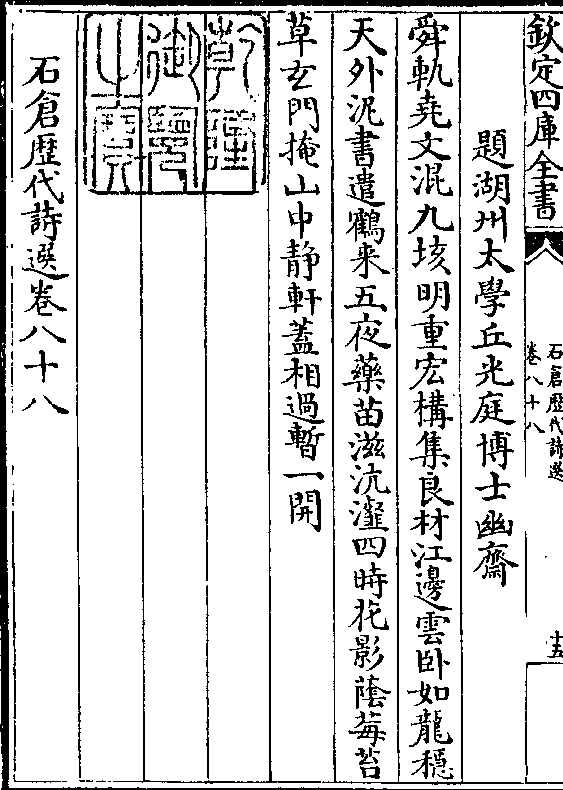 欽定四庫全書
石倉歴代詩選
卷八十八
十五
題湖州太學丘光庭博士幽齋
舜軌堯文混九垓明重宏構集良材江邊雲卧如龍穩
天外泥書遣鶴来五夜藥苗滋沆瀣四時花影蔭莓苔
草玄門掩山中静軒蓋相過暫一開
乾隆
御覽
之寳
石倉歴代詩選卷八十八